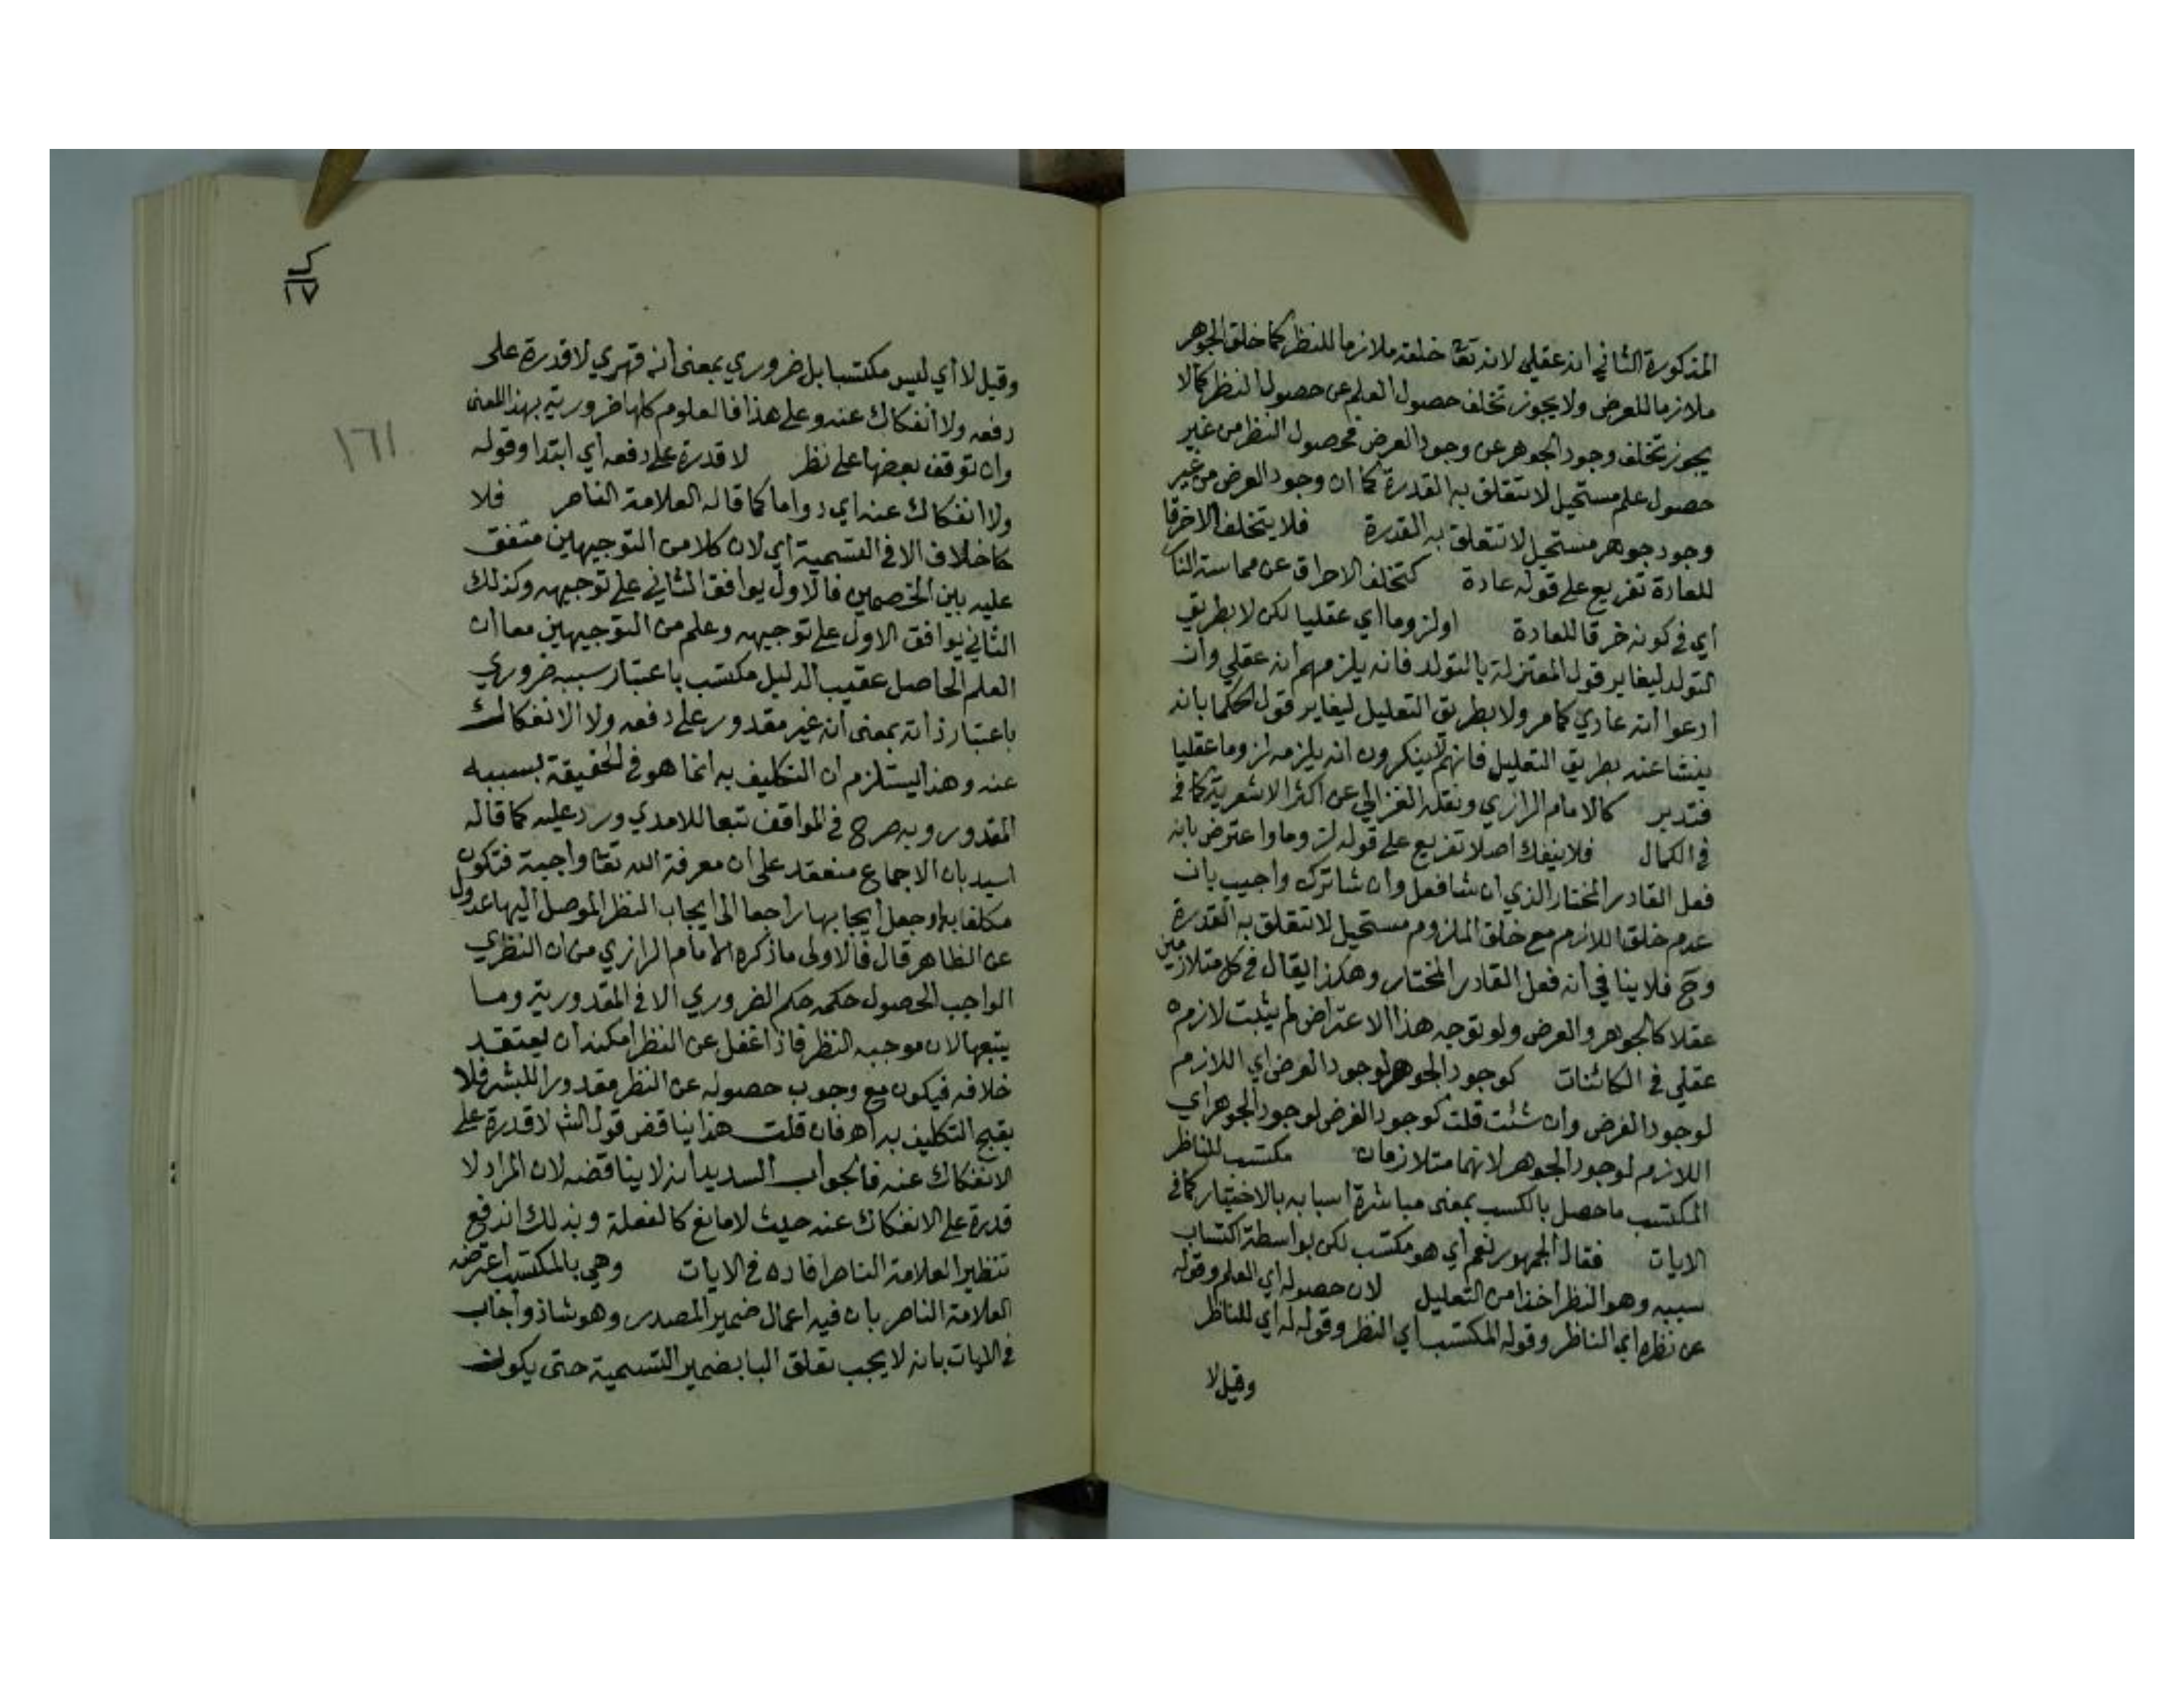 المذكورة الثاني انه عقلي لانه تعا خلقه ملازما للنظر كما خلق الجوهر
ملازما للعرض ولا يجوز تخلف حصول العلم عن حصول النظر كما لا
يجوز تخلف وجود الجوهر عن وجود العرض فحصول النظر من غير
حصول علم مستحيل لا تتعلق به القدرة كما ان وجود العرض من غير
وجود جوهر مستحيل لا تتعلق به القدرة فلا يتخلف الا خرقا
للعادة تفريع على قوله عادة كتخلف الاحراق عن مماسة النار
أي في كونه خرقا للعادة او لزوما أي عقليا لكن لا بطريق
التولد ليغاير قول المعتزلة بالتولد فانه يلزمهم انه عقلي وان
ادعوا انه عادي كما مر ولا بطريق التعليل ليغاير قول الحكما بانه
ينشا عنه بطريق التعليل فانهم لا ينكرون انه يلزمه لزوما عقليا
فتدبر كالامام الرازي ونقله الغزالي عن اكثر الاشعرية كما في
في الكمال فلا ينفك اصلا تفريع على قوله لزوما واعترض بانه
فعل القادر المختار الذي ان شا فعل وان شا ترك واجيب بان
عدم خلق اللازم مع خلق الملزوم مستحيل لا تتعلق به القدرة
وح فلا ينافي أنه فعل القادر المختار وهكذا يقال في كل متلازمين
عقلا كالجوهر والعرض ولو توجه هذا الاعتراض لم يثبت لازم
عقلي في الكائنات كوجود الجوهر لوجود العرض اي اللازم
لوجود العرض وان شئت قلت كوجود العرض لوجود الجوهر اي
اللازم لوجود الجوهر لانهما متلازمان مكتسب للناظر
المكتسب ما حصل بالكسب بمعنى مباشرة اسبابه بالاختيار كما في
الايات فقال الجمهور نعم أي هو مكتسب لكن بواسطة اكتساب
سببه وهو النظر اخذا من التعليل لان حصوله أي العلم وقوله
عن نظره اي الناظر وقوله المكتسب أي النظر وقوله له أي للناظر
وقيل لا
ك
١٧
١٦١
وقيل لا أي ليس مكتسبا بل ضروري بمعنى أنه قهري لا قدرة على
دفعه ولا انفكاك عنه وعلى هذا فالعلوم كلها ضرورية بهذا المعنى
وان توقف بعضها على نظر لا قدرة على دفعه أي ابتدا وقوله
ولا انفكاك عنه اي دواما كما قاله العلامة الناصر فلا
خلاف الا في التسمية اي لان كلا من التوجيهين متفق
عليه بين الخصمين فالاول يوافق الثاني على توجيهه وكذلك
الثاني يوافق الاول على توجيهه وعلم من التوجيهين معا ان
العلم الحاصل عقيب الدليل مكتسب باعتبار سببه ضروري
باعتبار ذاته بمعنى انه غير مقدور على دفعه ولا الانفكاك
عنه وهذا يستلزم ان التكليف به انما هو في الحقيقة بسببه
المقدور وبه صرح في المواقف تبعا للامدي ورد عليه كما قاله
السيد بان الاجماع منعقد على ان معرفة الله تعا واجبة فتكون
مكلفا بها وجعل ايجابها راجعا الى ايجاب النظر الموصل اليها عدول
عن الظاهر قال فالاولى ما ذكره الامام الرازي من ان النظري
الواجب الحصول حكمه حكم الضروري الا في المقدورية وما
يتبعها لان موجبه النظر فاذا غفل عن النظر امكنه ان يعتقد
خلافه فيكون مع وجوب حصوله عن النظر مقدورا للبشر فلا
يقبح التكليف به اه فان قلت هذا يناقض قول الش لا قدرة على
الانفكاك عنه فالجواب السديد انه لا يناقضه لان المراد لا
قدرة على الانفكاك عنه حيث لا مانع كالغفلة وبذلك اندفع
تنظير العلامة الناصر افاده في الايات وهي بالمكتسب اعترضه
العلامة الناصر بان فيه اعمال ضمير المصدر وهو شاذ واجاب
في الايات بانه لا يجب تعلق البا بضمير التسمية حتى يكون